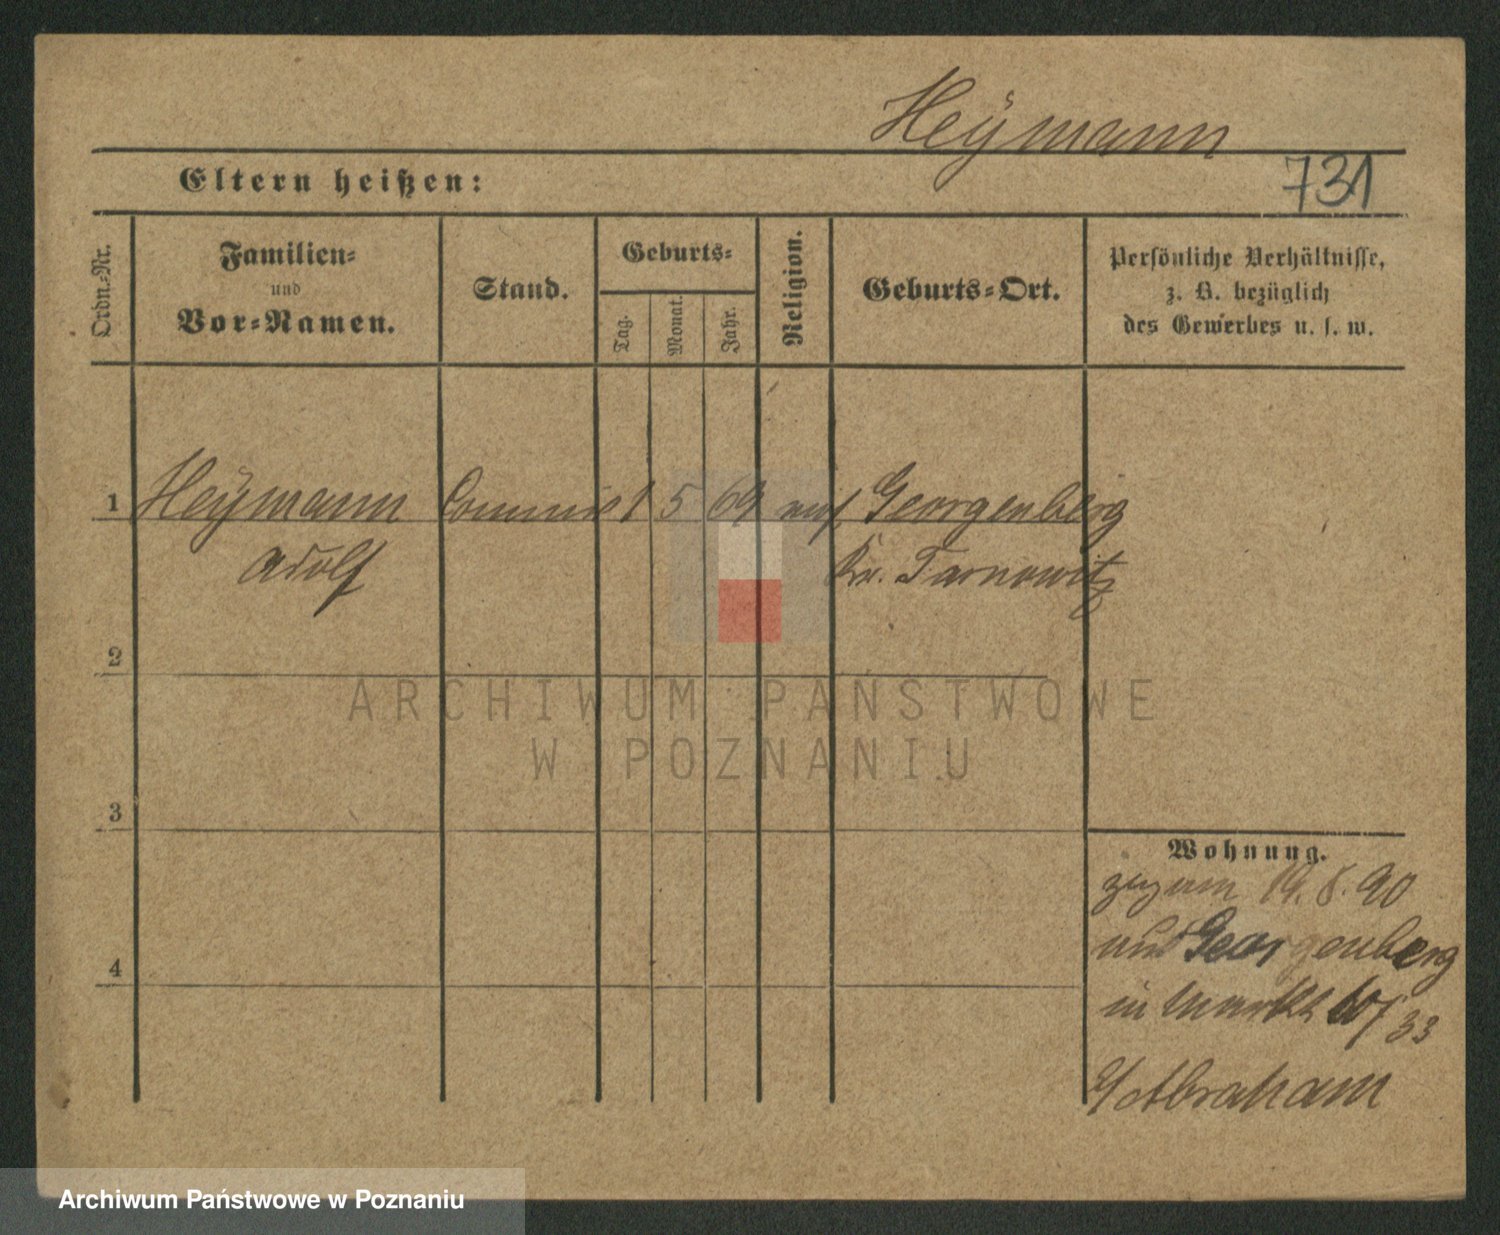 Heymann
Eltern heißen:
731
Ordn.-Nr.
Familien-
und
Vor-Namen.
Stand.
Geburts-
Tag.
Monat.
Jahr.
Religion.
Geburts-Ort.
Persönliche Verhältnisse,
z. B. bezüglich
des Gewerbes u. s. w.
1 Heymann Commis 1 5 69 mos. Georgenberg
Adolf Kr. Tarnowitz
2
ARCHIWUM PAŃSTWOWE
W POZNANIU
3
Wohnung.
zugem 19. 8. 90
aus Georgenberg
4
in Markt 33
b/Abraham
Archiwum Państwowe w Poznaniu